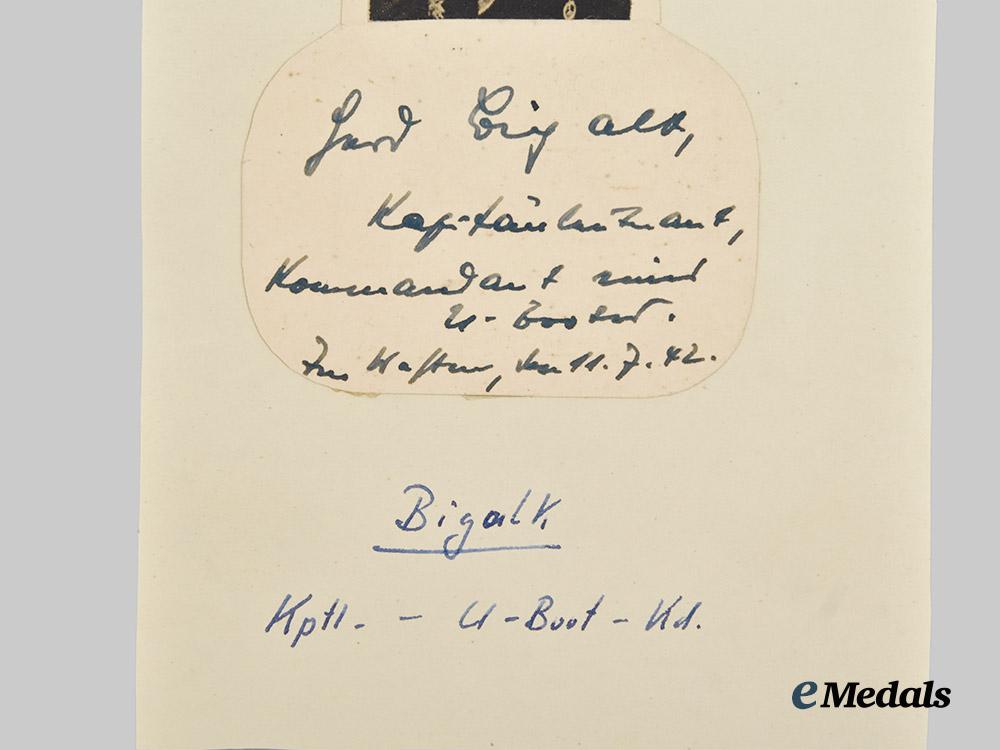 Gerd Bigalk,
Kapitänleutnant,
Kommandant eines
U-Bootes.
Im Westen, den 11.7.42.
Bigalk
Kptl. - U-Boot-Kd.
eMedals